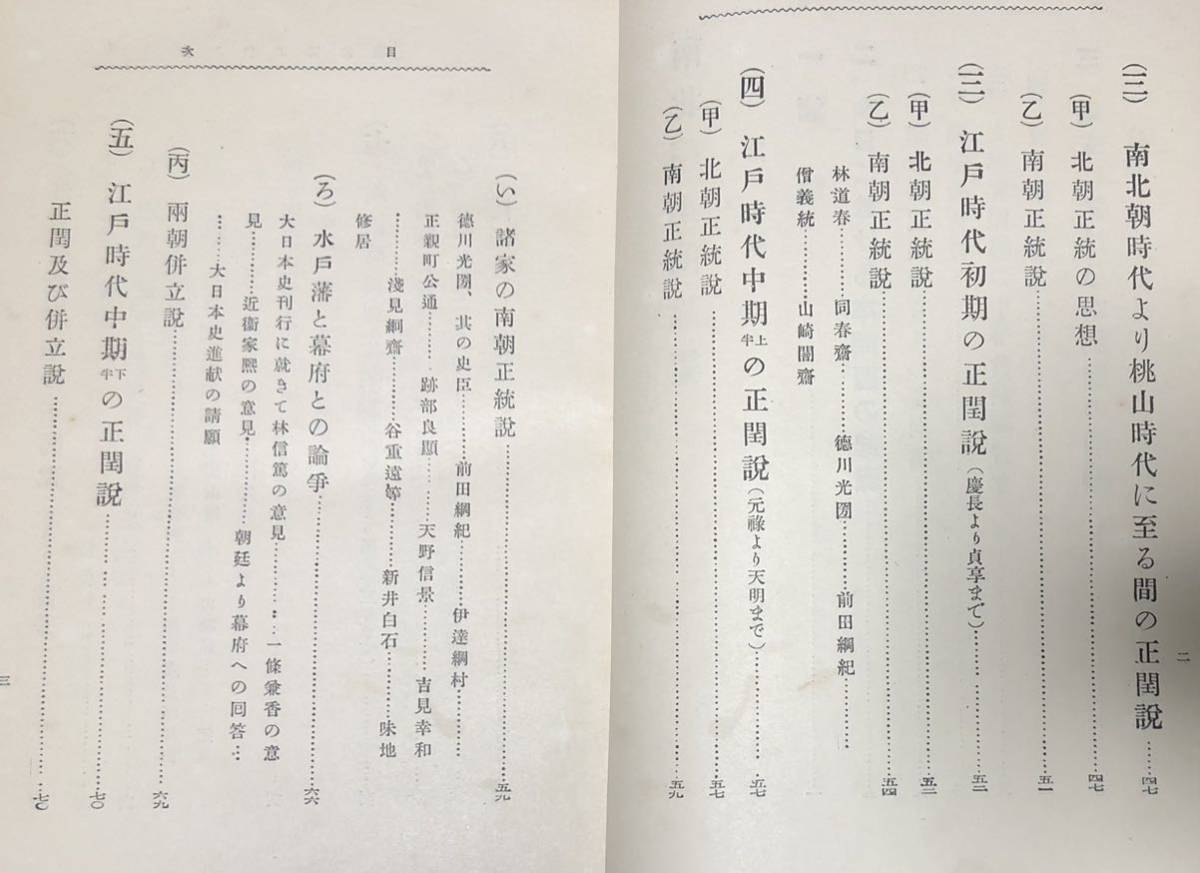 (二) 南北朝時代より桃山時代に至る間の正閏說……四七
(甲) 北朝正統の思想……四七
(乙) 南朝正統說……五一
(三) 江戶時代初期の正閏說(慶長より貞享まで)……五二
(甲) 北朝正統說……五二
(乙) 南朝正統說……五四
林道春……同春齋……德川光圀……前田綱紀……
僧義統……山崎闇齋
(四) 江戶時代中期上半の正閏說(元祿より天明まで)……五七
(甲) 北朝正統說……五七
(乙) 南朝正統說……五九
二
目次
(い) 諸家の南朝正統說……五九
德川光圀、其の史臣……前田綱紀……伊達綱村……
正親町公通……跡部良顯……天野信景……吉見幸和
……淺見絅齋……谷重遠等……新井白石……味地
修居
(ろ) 水戶藩と幕府との論爭……六六
大日本史刊行に就きて林信篤の意見……一條兼香の意
見……近衞家熙の意見……朝廷より幕府への囘答…
……大日本史進献の請願
(丙) 兩朝併立說……六九
(五) 江戶時代中期下半の正閏說……七〇
正閏及び併立說……七〇
三